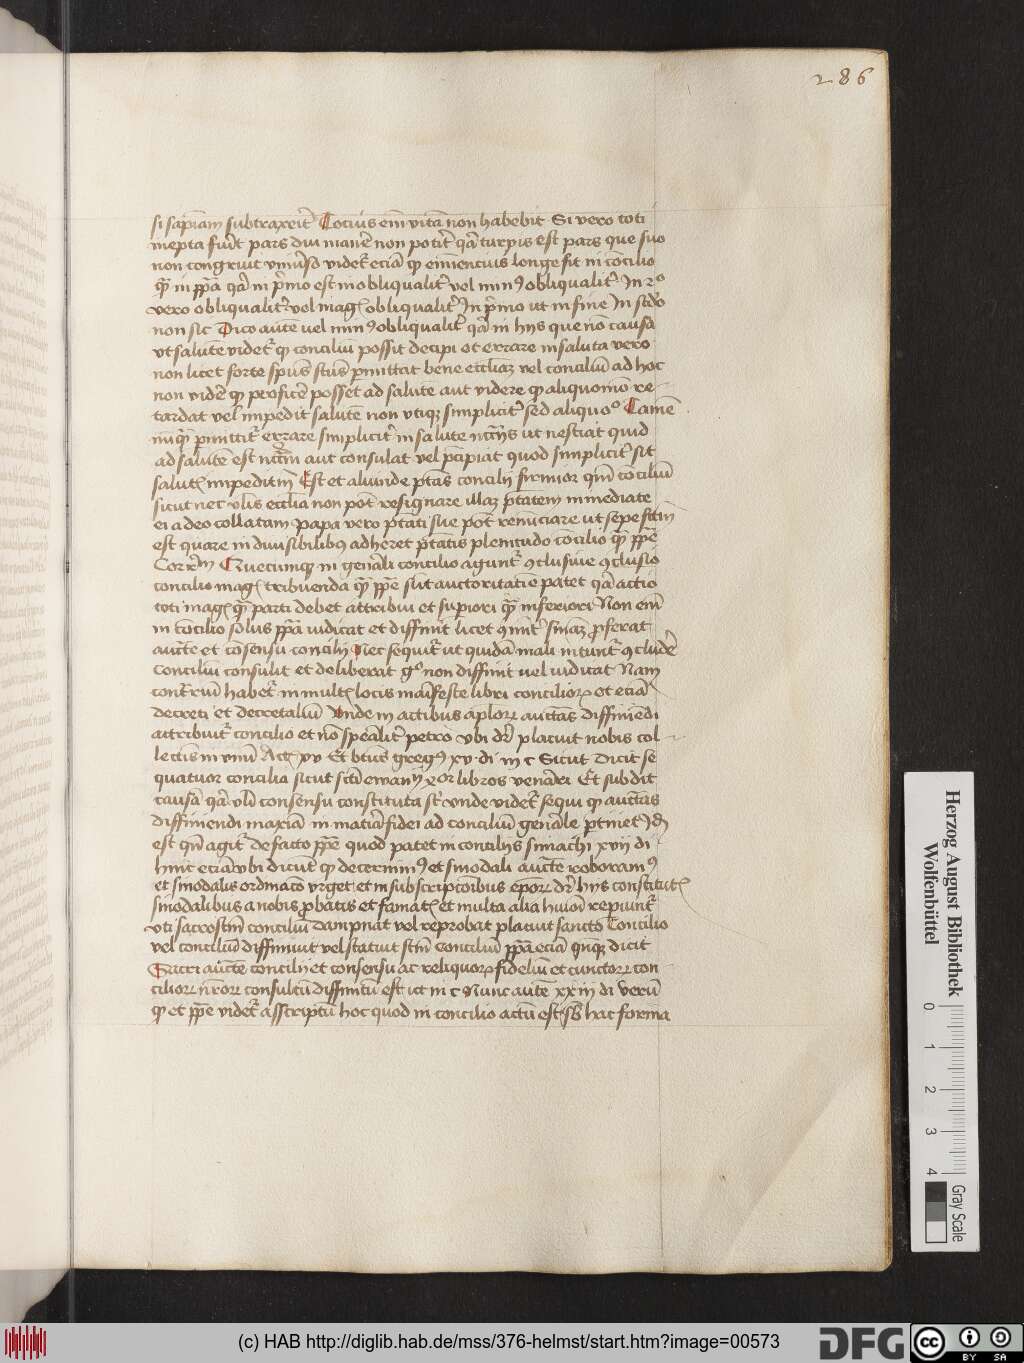 286
si sapiam subtraxeit Tocius em vita non habebit Si vero toti
inepta fuit pars diu manere non potit qa turpis est pars que suo
non congruit universo videt ecia qp eminencius longe sit in cocilio
qp in ppa qa in pimo est inobliqualit vel min9 obliqualit In 2o
vero obliqualit vel mag obliqualit In pimo ut in fine In scdo
non sic Dico aute vel min9 obliqualit qa in hys que no causa
vt salute videt qp conciliu possit decipi et errare in saluta vero
non licet forte spus scus pmittat bene eccliaz vel conciliu ad hoc
non vide qp proficere posset ad salute aut videre qp aliquomo re-
tardat vel impedit salute non vtiqz simplicit sed aliquo Tamen
nuq pmittit errare simplicit in salute ncciis ut nesciat quid
ad salute est nccm aut consulat vel pcipiat quod simplicit sit
salut impeditim Est et aliunde ptas concilii firmior qm conciliu
sicut nec vlis ecclia non pot resignare illaz ptatem immediate
ei a deo collatam Papa vero ptati sue pot renunciare ut sepe fcm
est quare indiuisibilibus adheret ptatis plenitudo concilio qp ppe
Correm Quecumqz in genali concilio agunt 9clusiue 9clusio
concilio mag tribuenda qp ppe sut auctoritatie patet qa actio
toti mag qp parti debet attribui et supiori qp inferiori Non em
in concilio solus ppa iudicat et diffinit licet 9init sniaz pferat
aucte et cosensu concilii Nec sequit ut quida mali nitunt 9cludere
Conciliu consulit et deliberat go non diffinit vel iudicat Nam
contriu habet in mult locis maifeste libri concilior et ecia
decreti et decretaliu Unde in actibus aplor auctas diffiniedi
attribuit concilio et no spealit petro vbi dr placuit nobis col-
lectis in vnu Act xv Et btus greg9 xv di in c Sicut Dicit se
quatuor concilia sicut scti ewangii 4or libros venari Et subdit
causa qa vli consensu constituta st vnde videt sequi qp auctas
diffiniendi maxia in matia fidei ad conciliu genale ptinet Id
est qn agit de facto ppe quod patet in conciliis simachi xvii di
hinc ecia vbi dicut qp decernim9 et sinodali aucte roboram9
et sinodalis ordinaco vrget et in subscriptoibus epor dr hys constitut
sinodalibus a nobis pbatis et famat et multa alia huioi repiunt
vti sacrosctm conciliu dampnat vel reprobat placuit sancto Concilio
vel conciliu diffiniuit vel statuit scm Conciliu ppa ecia qnqz dicit
Sacri aucte concilii et consensu ac reliquor fideliu et cunctor con-
cilior nror consultu diffinitu est ut in c Nunc aute xxiii di veru
qp et ppe videt asscriptu hoc quod in concilio actu est sb hac forma
Herzog August Bibliothek
Wolfenbüttel
0 1 2 3 4
Gray Scale
(c) HAB http://diglib.hab.de/mss/376-helmst/start.htm?image=00573
DFG
cc BY SA